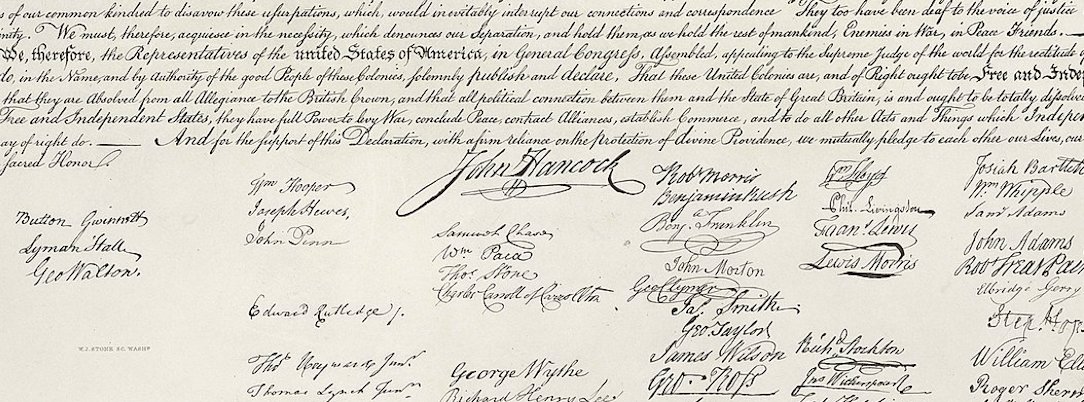 s of our common kindred to disavow these usurpations, which, would inevitably interrupt our connections and correspondence They too have been deaf to the voice of justice
We must, therefore, acquiesce in the necessity, which denounces our Separation, and hold them, as we hold the rest of mankind, Enemies in War, in Peace Friends. —
We, therefore, the Representatives of the united States of America, in General Congress, Assembled, appealing to the Supreme Judge of the world for the rectitude
do, in the Name, and by Authority of the good People of these Colonies, solemnly publish and declare, That these United Colonies are, and of Right ought to be Free and Inde
that they are Absolved from all Allegiance to the British Crown, and that all political connection between them and the State of Great Britain, is and ought to be totally dissolve
Free and Independent States, they have full Power to levy War, conclude Peace, contract Alliances, establish Commerce, and to do all other Acts and Things which Indepen
ay of right do. — And for the support of this Declaration, with a firm reliance on the protection of divine Providence, we mutually pledge to each other our Lives, our
Sacred Honor.
Button Gwinnett
Lyman Hall
Geo Walton.
W.J. STONE SC. WASHN.
Wm Hooper
Joseph Hewes,
John Penn
Edward Rutledge /.
Thos Heyward Junr.
Thomas Lynch Junr.
John Hancock
Samuel Chase
Wm Paca
Thos Stone
Charles Carroll of Carrollton
George Wythe
Richard Henry Lee
Robt Morris
Benjamin Rush
Benja Franklin
John Morton
Geo Clymer
Jas. Smith
Geo. Taylor
James Wilson
Geo. Ross
Wm Floyd
Phil. Livingston
Frans. Lewis
Lewis Morris
Richd. Stockton
Jno Witherspoon
Josiah Bartlett
Wm. Whipple
Saml Adams
John Adams
Robt Treat Pain
Elbridge Gerry
Step. Hop
William Elle
Roger Sherm